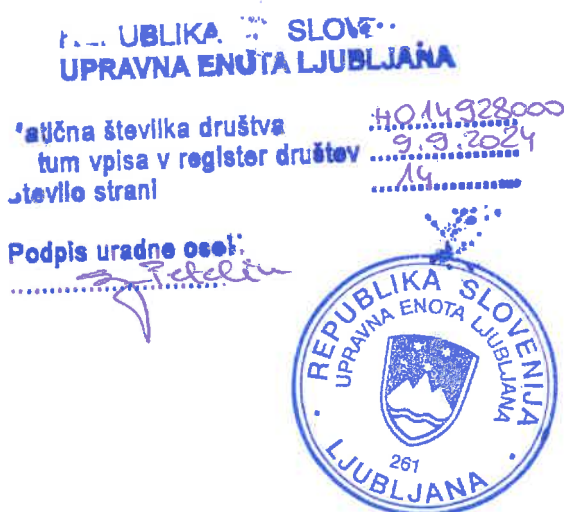 UBLIKA SLOV
UPRAVNA ENOTA LJUBLJANA
atična številka društva 4014928000
tum vpisa v register društev 9.9.2024
število strani 14
Podpis uradne osebe:
REPUBLIKA SLOVENIJA
UPRAVNA ENOTA LJUBLJANA
261
LJUBLJANA